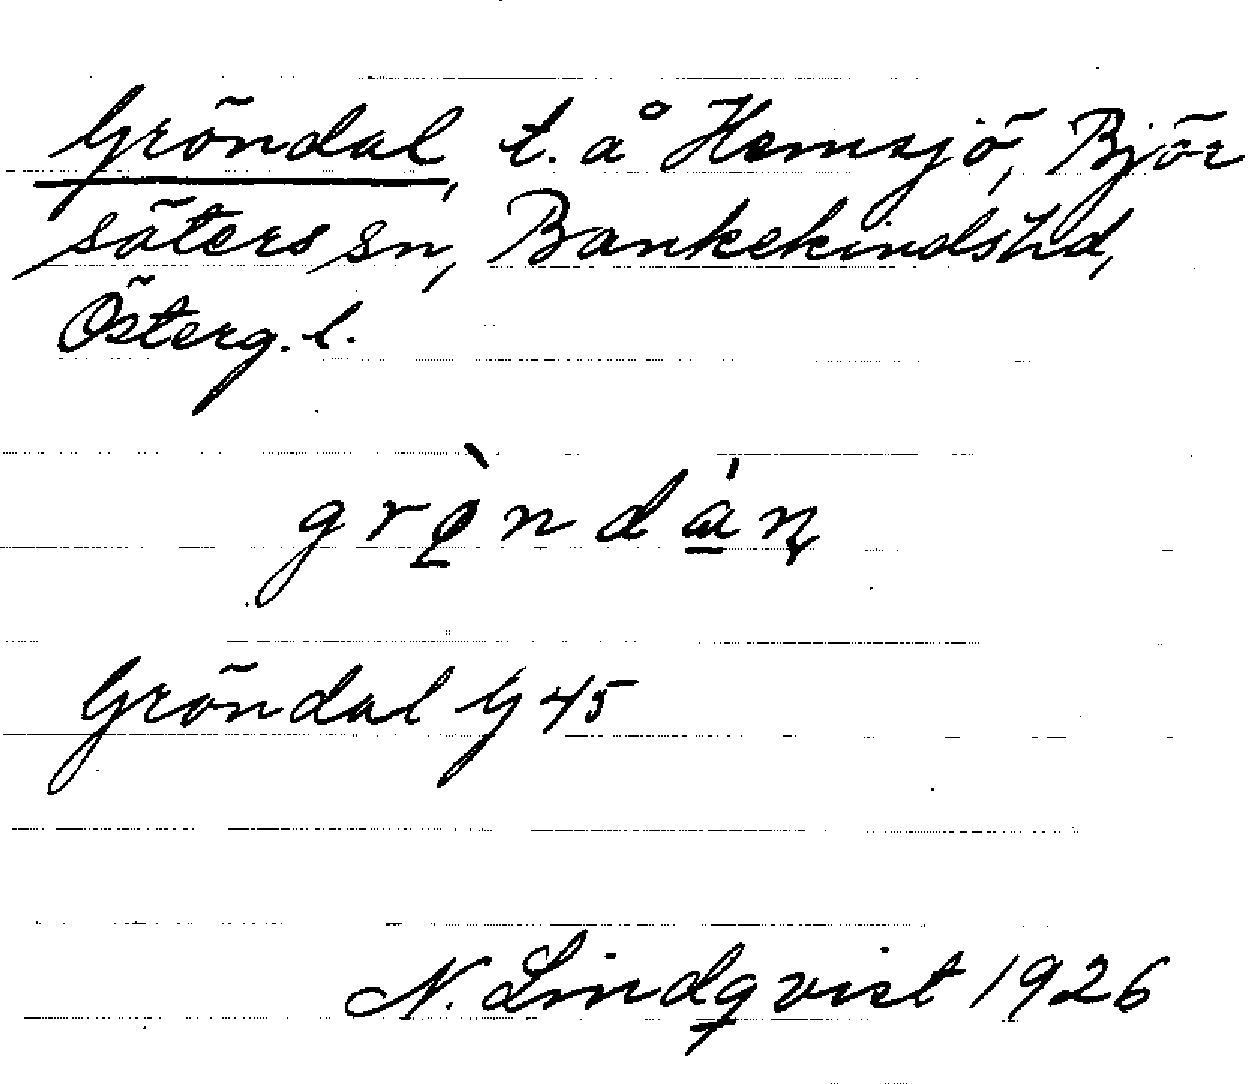 Gröndal, t. å Hemsjö, Björ
säters sn, Bankekinds hd,
Österg. l.
grø̀ndán
Gröndal G 45
N. Lindqvist 1926